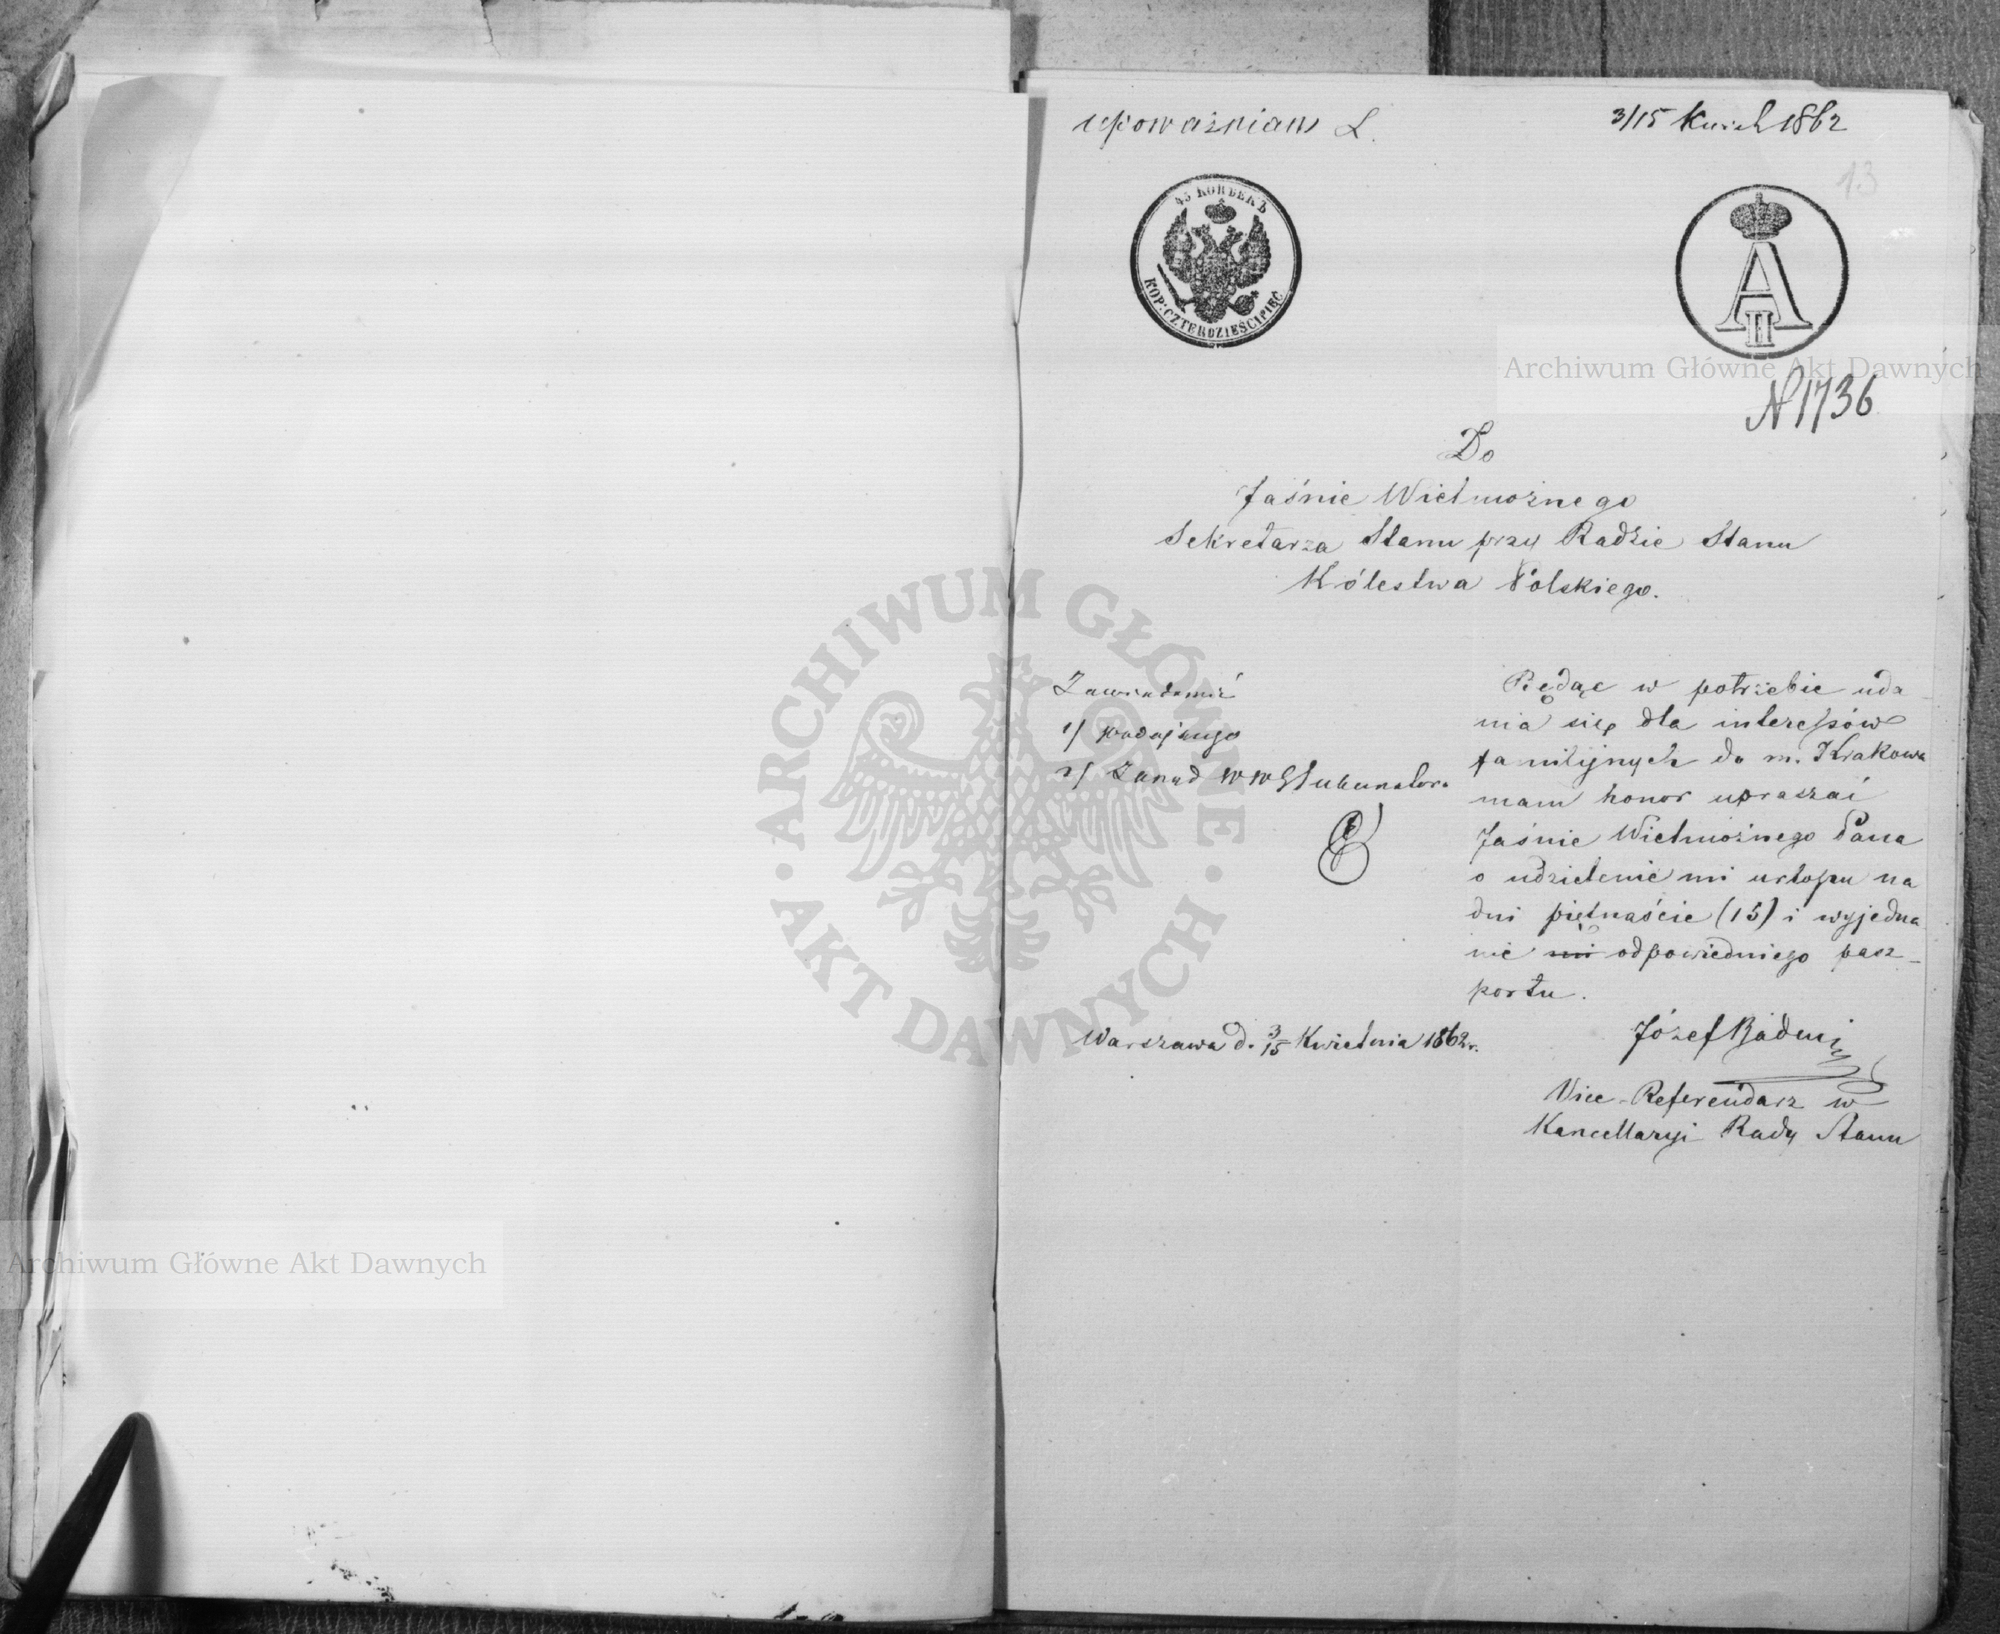 upoważniam L.
3/15 Kwieth 1862
13
45 КОПѢЕКЪ
KOP: CZTERDZIEŚCI PIĘĆ
A II
Archiwum Główne Akt Dawnych
N 1736
Do
Jaśnie Wielmożnego
Sekretarza Stanu przy Radzie Stanu
Królestwa Polskiego.
Zawiadomić
1/ podającego
2/ Zarząd WW Gubernatora
Będąc w potrzebie uda-
nia się dla interessów
familijnych do m. Krakowa
mam honor upraszać
Jaśnie Wielmożnego Pana
o udzielenie mi urlopu na
dni piętnaście (15) i wyjedna
nie mi odpowiedniego pasz-
portu.
Warszawa d. 3/15 Kwietnia 1862 r.
Józef Badeni
Vice-Referendarz w
Kancellaryi Rady Stanu
ARCHIWUM GŁÓWNE
AKT DAWNYCH
Archiwum Główne Akt Dawnych